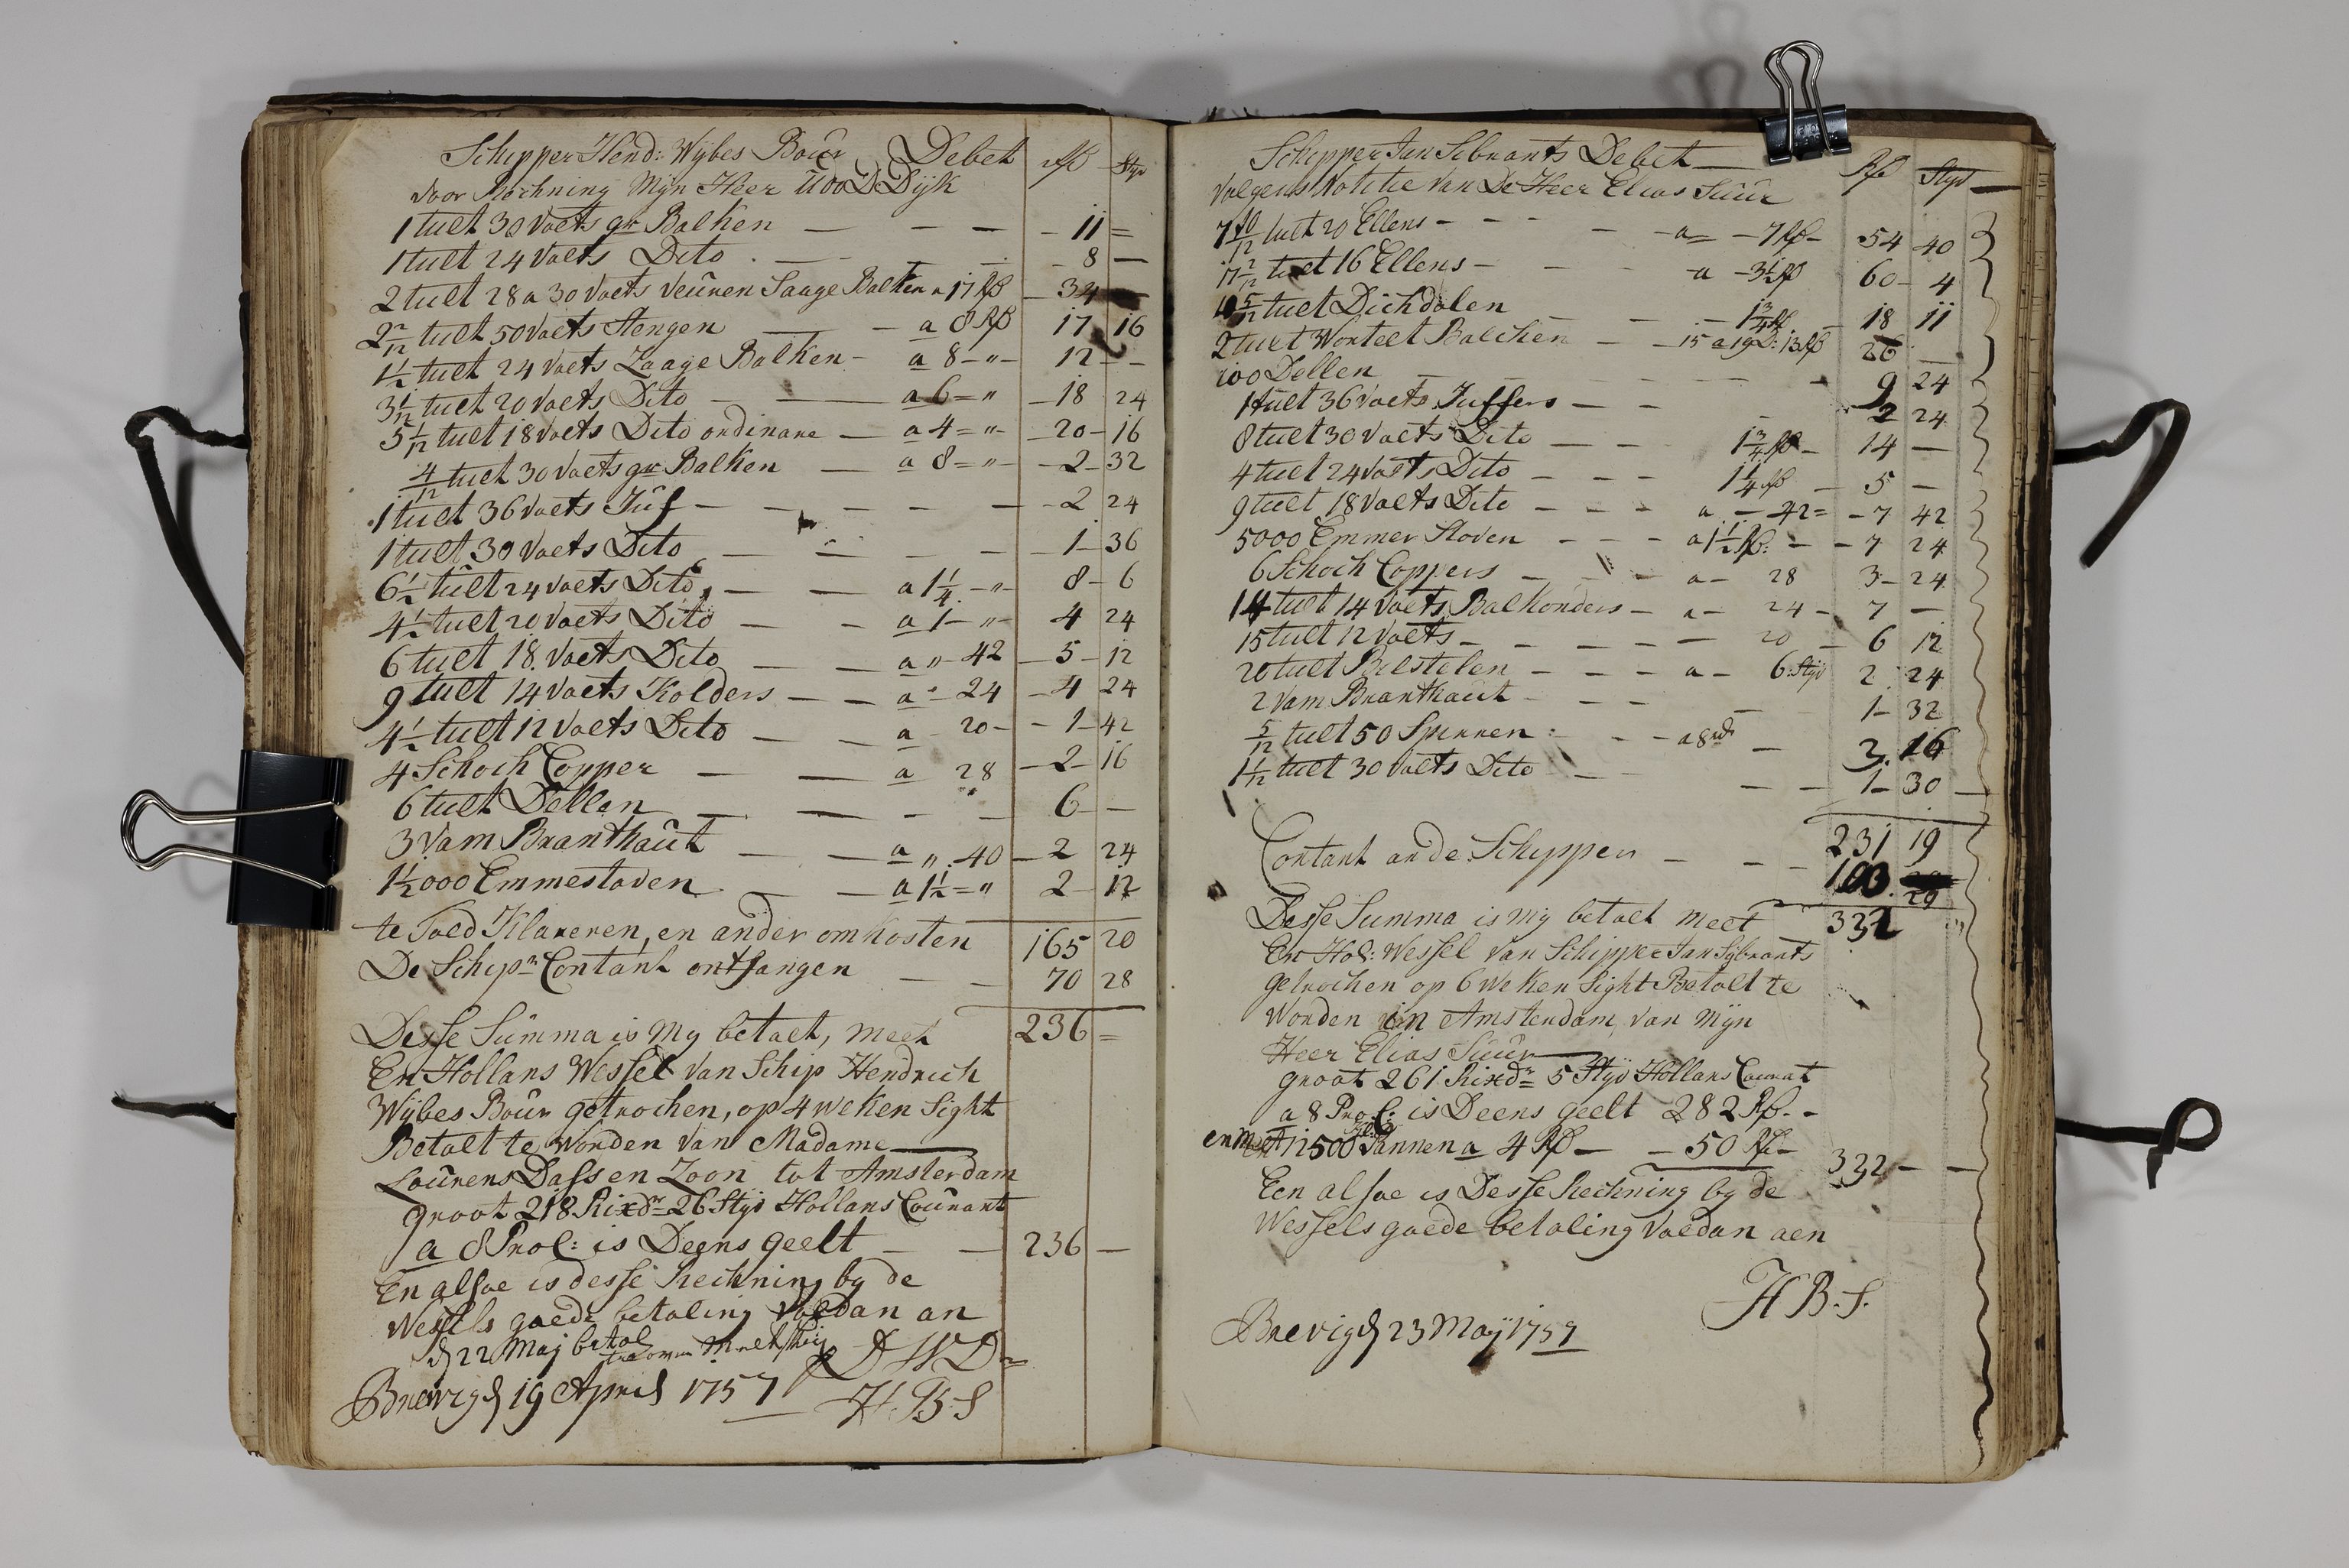 Schipper Hend: Wijbes Boûr Debet Rd Styv
voor Rechning Mijn Heer UdoD:Dijk
1 tult 30 Voets gr Balken — — — 11 =
1 tult 24 Voets Dito — — — 8 —
2 tult 28 a 30 Voets Veûren Saage Balken a 17 Rd — 34 —
2 2/12 tult 50 Voets Stengen — — a 8 Rd 17 16
1 1/2 tult 24 Voets Zaage Balken — a 8 — " — 12 —
3 1/12 tult 20 Voets Dito — — a 6 = " — 18 24
5 1/12 tult 18 Voets Dito ordinare — a 4 = " — 20 — 16
4/12 tult 30 Voets gr Balken — a 8 = " — 2 — 32
1 tult 36 Voets Jûf — — — — — 2 24
1 tult 30 Voets Dito — — — — 1 — 36
6 1/2 tûlt 24 Voets Dito — — a 1 1/4 — " — 8 — 6
4 1/2 tult 20 Voets Dito — — a 1 — " — 4 24
6 tult 18 Voets Dito — — a " 42 — 5 — 12
9 tult 14 Voets Kolders — — a — 24 — 4 24
4 1/2 tult 12 Voets Dito — — a 20 — 1 — 42
4 Schoch Copper — — a 28 — 2 — 16
6 tult Dellen — — — — 6 —
3 Vam Branthaût — — a " 40 — 2 24
1 1/2 000 Emmestaven — a 1 1/2 = " 2 — 12
te Toed Klareren, en ander omkosten 165 20
De Schipr Contant ontfangen — — 70 28
Desse Sûmma is My betaelt, meet 236 =
En Hollans Wessel van Schip Hendrich
Wijbes Boûr getrochen, op 4 weken Sight
Betalt te Worden van Madame —
Loûrens Dass en Zoon tot Amsterdam
groot 218 Rixdr 26 Styv Hollans Coûrant
a 8 ProC: is Deens geelt — — 236 —
En alsoe is desse Rechning by de
Wessels goede betaling Voedan an
d 22 Maj betal
DWD
Brevig d 19 April 1757 H.B.S
Schipper Jan Sibrants Debet — Rd Styv —
Volgens Notitie Van De Heer Elias Suûr
7 10/12 tult 20 Ellens — — — — a — 7 Rd — 54 40
17 2/12 tult 16 Ellens — — — a — 3 1/2 Rd 60 — 4
10 5/12 tuet Dichdalen — — — 1 3/4 Rd 18 11
2 tult Worteet Balchen — — 15 a 19 D: 13 Rd 26 —
100 Dellen — — — — 9 24
1 tult 36 Voets Juffers — — 2 24
8 tult 30 Voets Dito — — 1 3/4 Rd — 14 —
4 tult 24 Voets Dito — — — 1 1/4 Rd — 5 —
9 tult 18 Voets Dito — — — a — 42 = — 7 42
5000 Emmer Stoven — — — a 1 1/2 Rd: — — 7 24
6 Schoch Coppers — — — a — 28 3 — 24
14 tult 14 Voets Balkonders — a — 24 — 7 —
15 tult 12 Voets — — — — — 20 6 12
20 tult Bilstelen — — — a — 6 Styv 2 24
2 Vam Branthaut — — — — 1 — 32
5/12 tult 50 Spieren — — — a 8 rd — 3. 16
1 1/12 tult 30 Voets Dito — — — 1 — 30 —
231 19
Contant an de Schipper — — — 29
Desse Summa is My betaelt meet 332
En Hol: Wessel Van Schipper Jan Sybrants
getrochen op 6 weken Sight Betalt te
Worden in Amsterdam, van Mijn
Heer Elias Suûr —
groot 261 Rixdr 5 Styv Hollans Courant
a 8 ProC: is Deens geelt 282 Rd. -
en met 12500 Pannen a 4 Rd — — 50 Rd — 332 — —
Een alsoe is Desse Rechning by de
Wessels goede betaling Voedan aen
H B. S.
Brevig d 23 Maij 1757